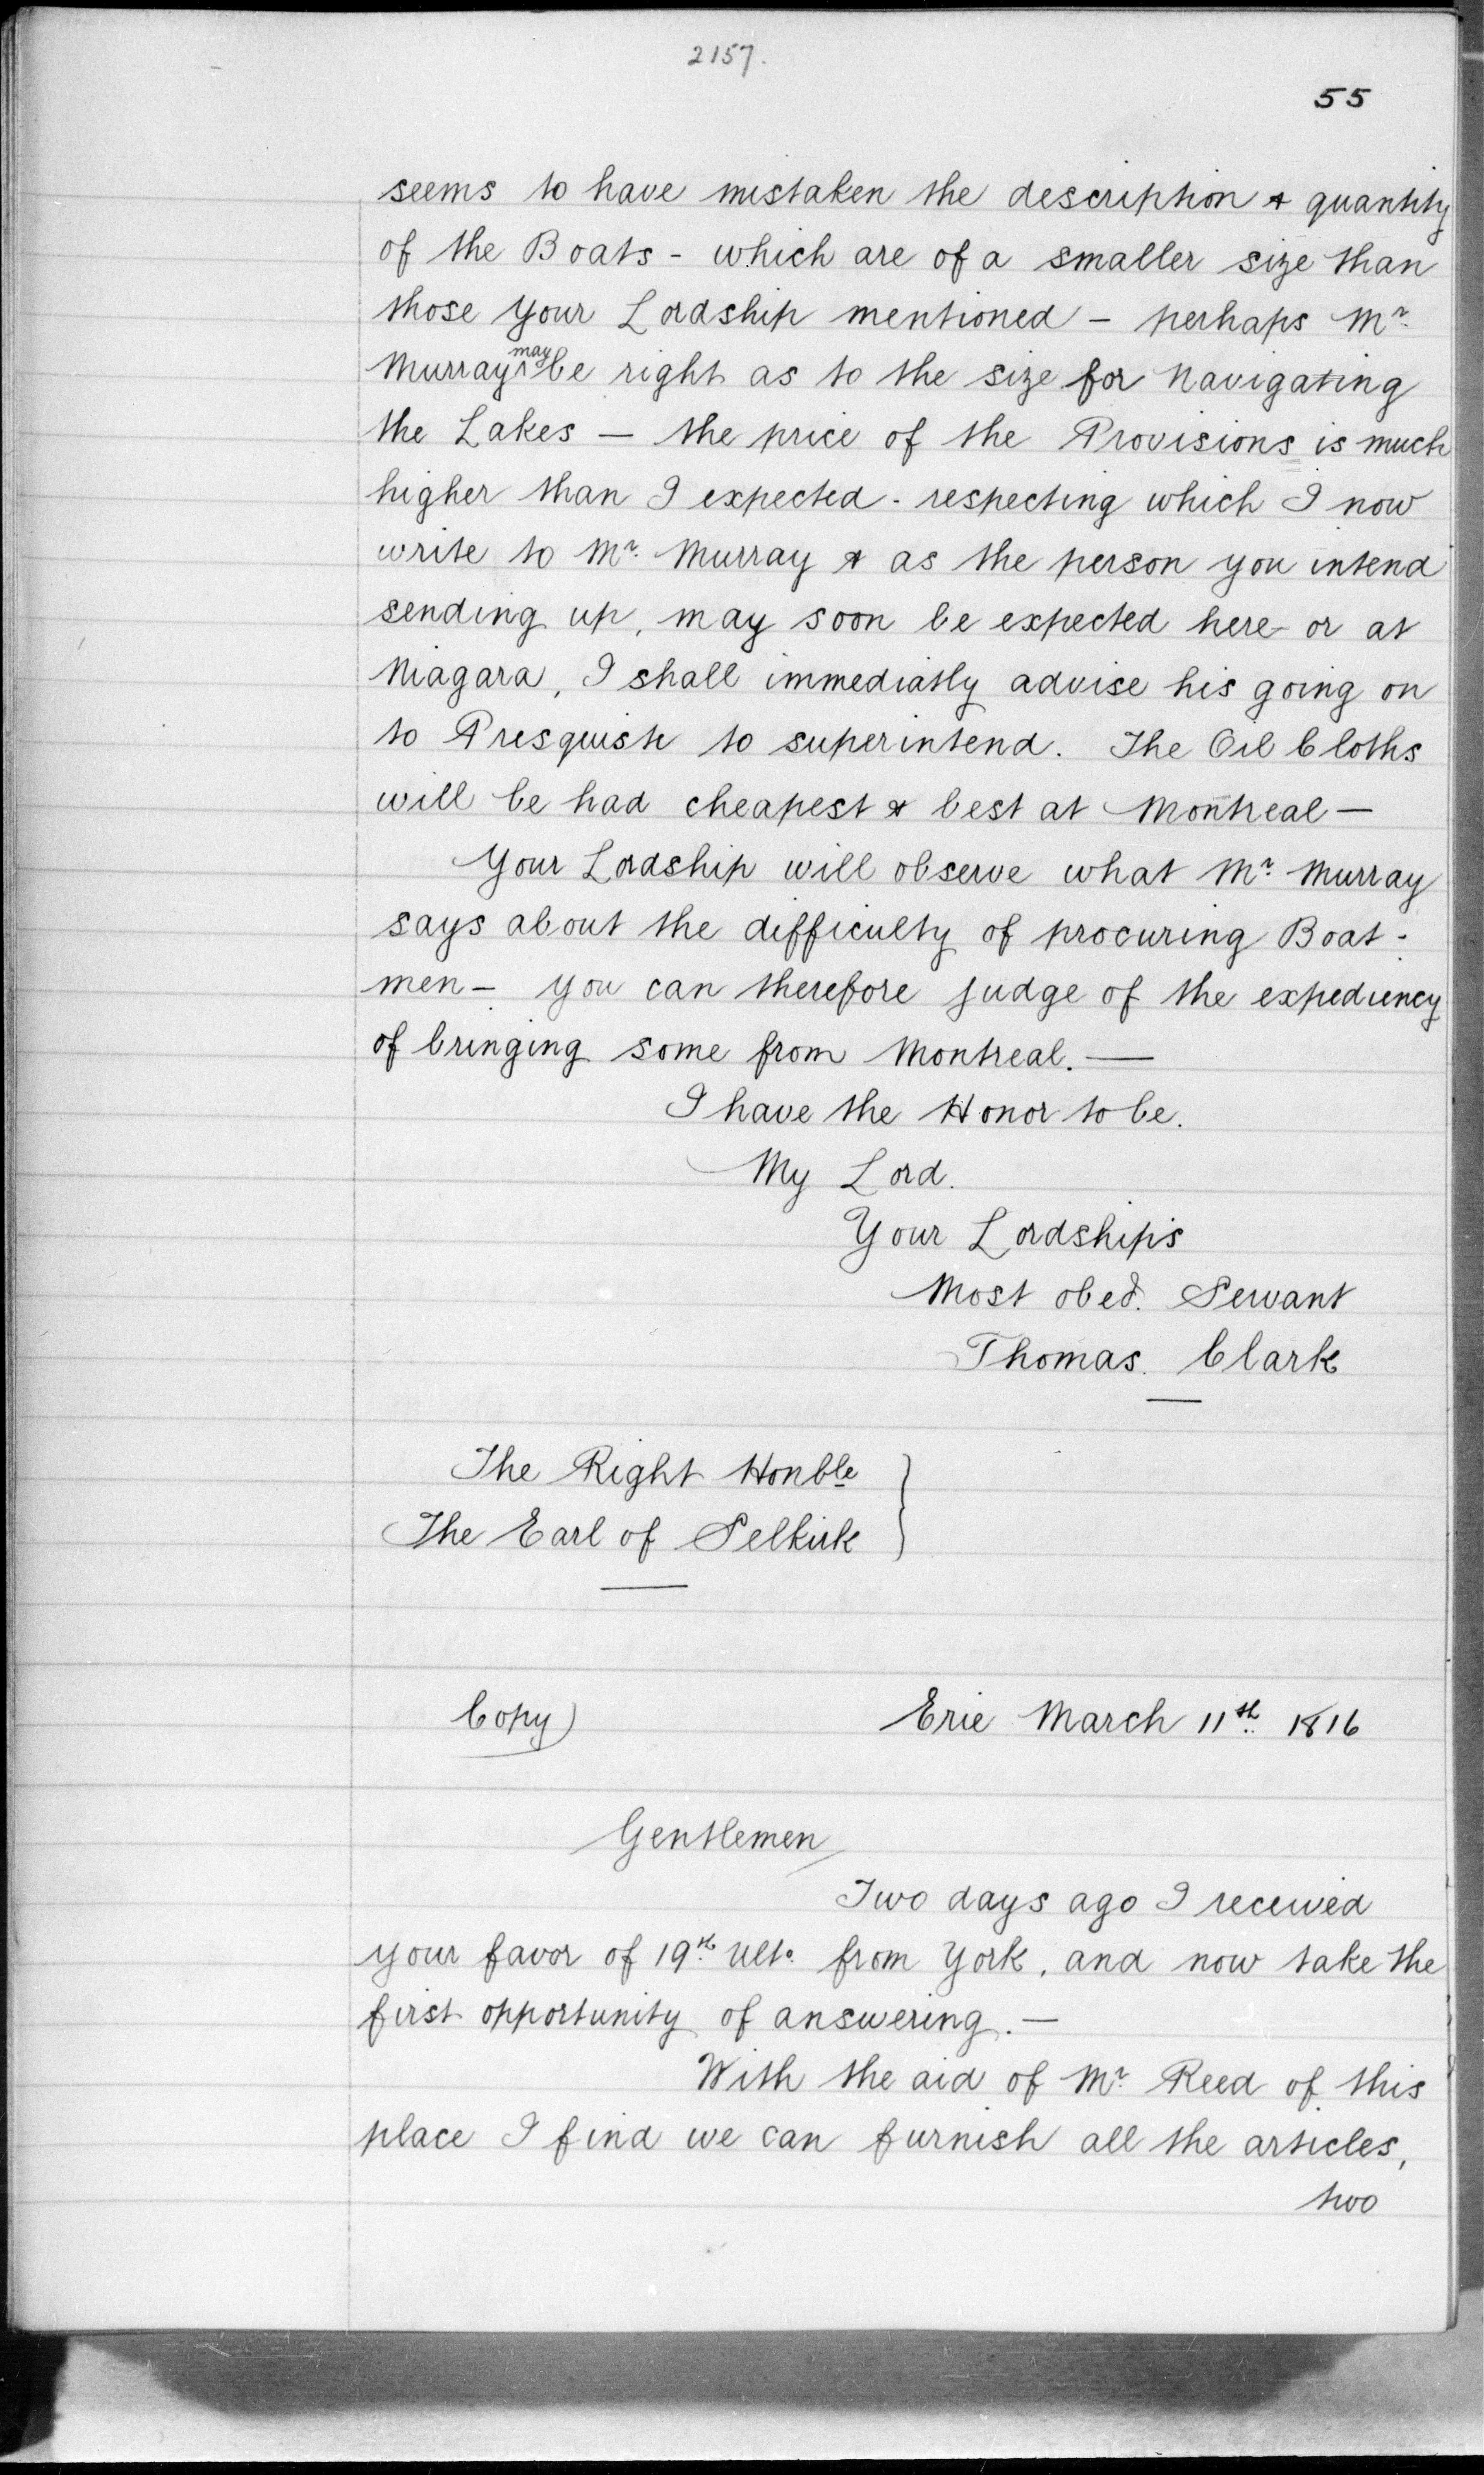 2157.
55
seems to have mistaken the description & quantity
of the Boats - which are of a smaller size than
those your Lordship mentioned - perhaps Mr.
Murray may be right as to the size for navigating
the Lakes — the price of the Provisions is much
higher than I expected - respecting which I now
write to Mr. Murray & as the person you intend
sending up, may soon be expected here or at
Niagara, I shall immediatly advise his going on
to Presquisle to superintend. The Oil Cloths
will be had cheapest & best at Montreal —
Your Lordship will observe what Mr. Murray
says about the difficulty of procuring Boat-
men - you can therefore judge of the expediency
of bringing some from Montreal. —
I have the Honor to be.
My Lord.
Your Lordship's
Most obed. Servant
Thomas. Clark
The Right Honble
The Earl of Selkirk
Copy)
Erie March 11th. 1816
Gentlemen
Two days ago I received
your favor of 19th. Ulto. from York, and now take the
first opportunity of answering. —
With the aid of Mr. Reed of this
place I find we can furnish all the articles,
two